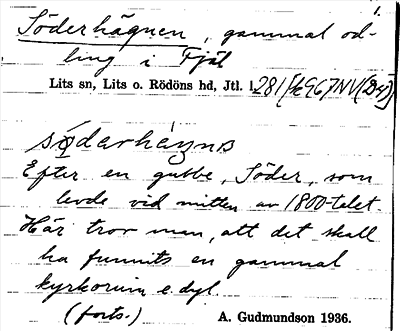 1.
Söderhägnen, gammal od-
ling i Fjäl
Lits sn, Lits o. Rödöns hd, Jtl. l.
södarhäŋnɒ
Efter en gubbe, Söder, som
levde vid mitten av 1800-talet.
Här tror man, att det skall
ha funnits en gammal
kyrkoruin e.dyl.
(forts.) A. Gudmundson 1936.